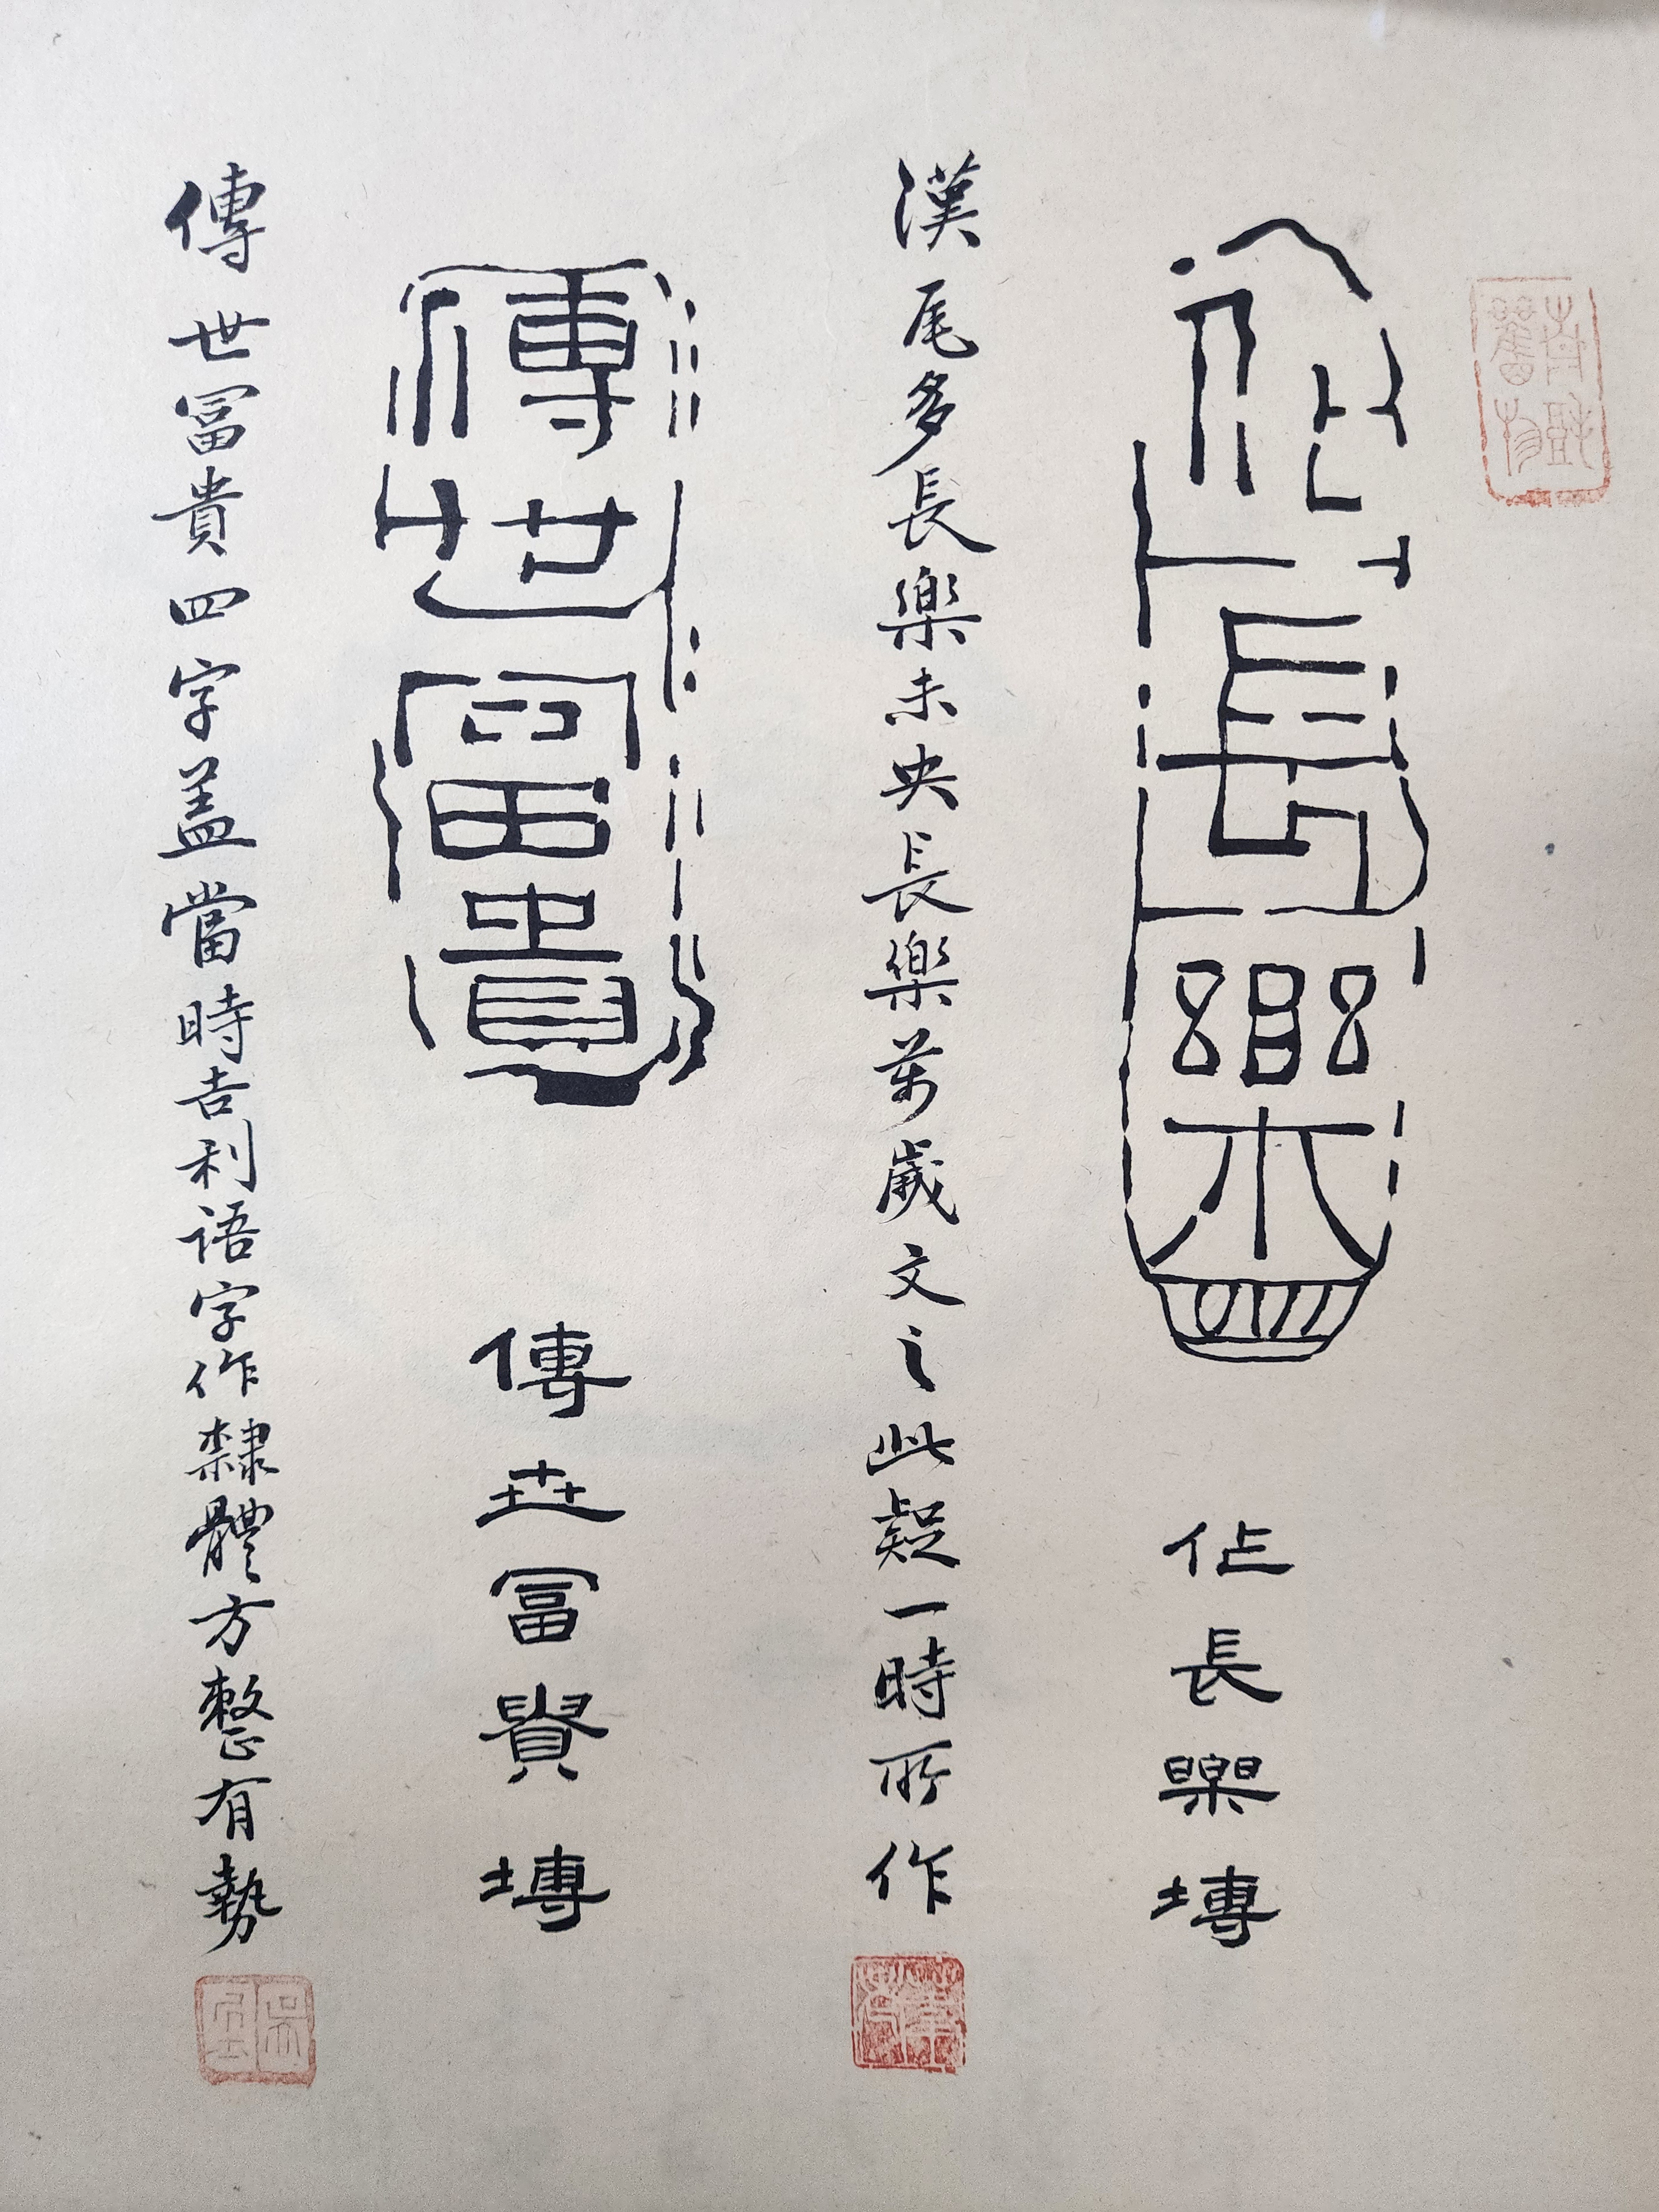 長樂
長樂塼
漢尾多長樂未央長樂萬歲文之此疑一時所作
傳世富貴
傳世富貴塼
傳世冨貴四字盖當時吉利語字作隸體方整有勢